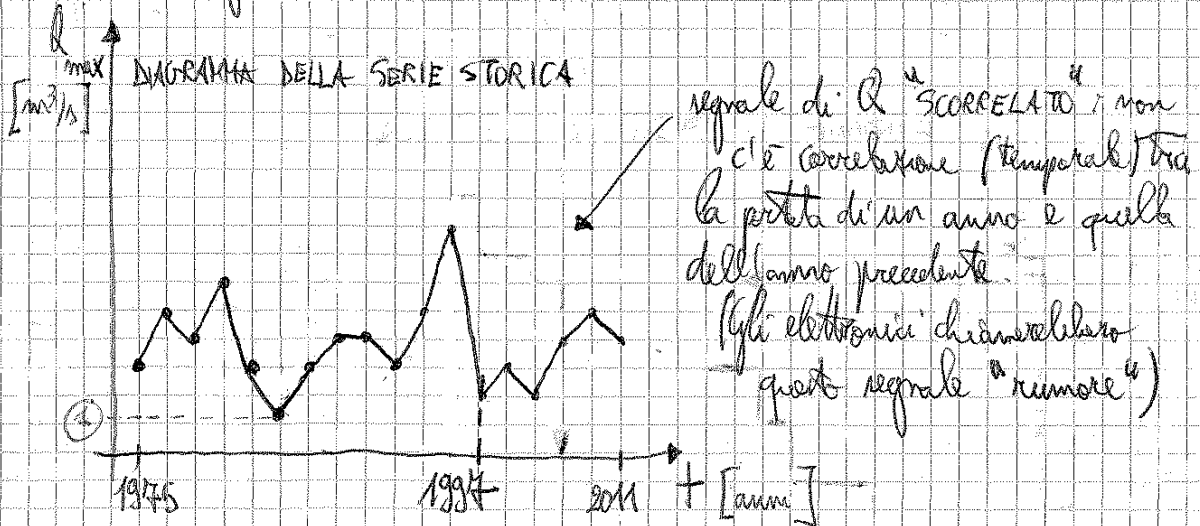 Q max
[m³/s]
DIAGRAMMA DELLA SERIE STORICA
segnale di Q "SCORRELATO": non
c'è correlazione (temporale) tra
la portata di un anno e quella
dell'anno precedente.
(Gli elettronici chiamerebbero
questo segnale "rumore")
1975
1997
2011
t [anni]